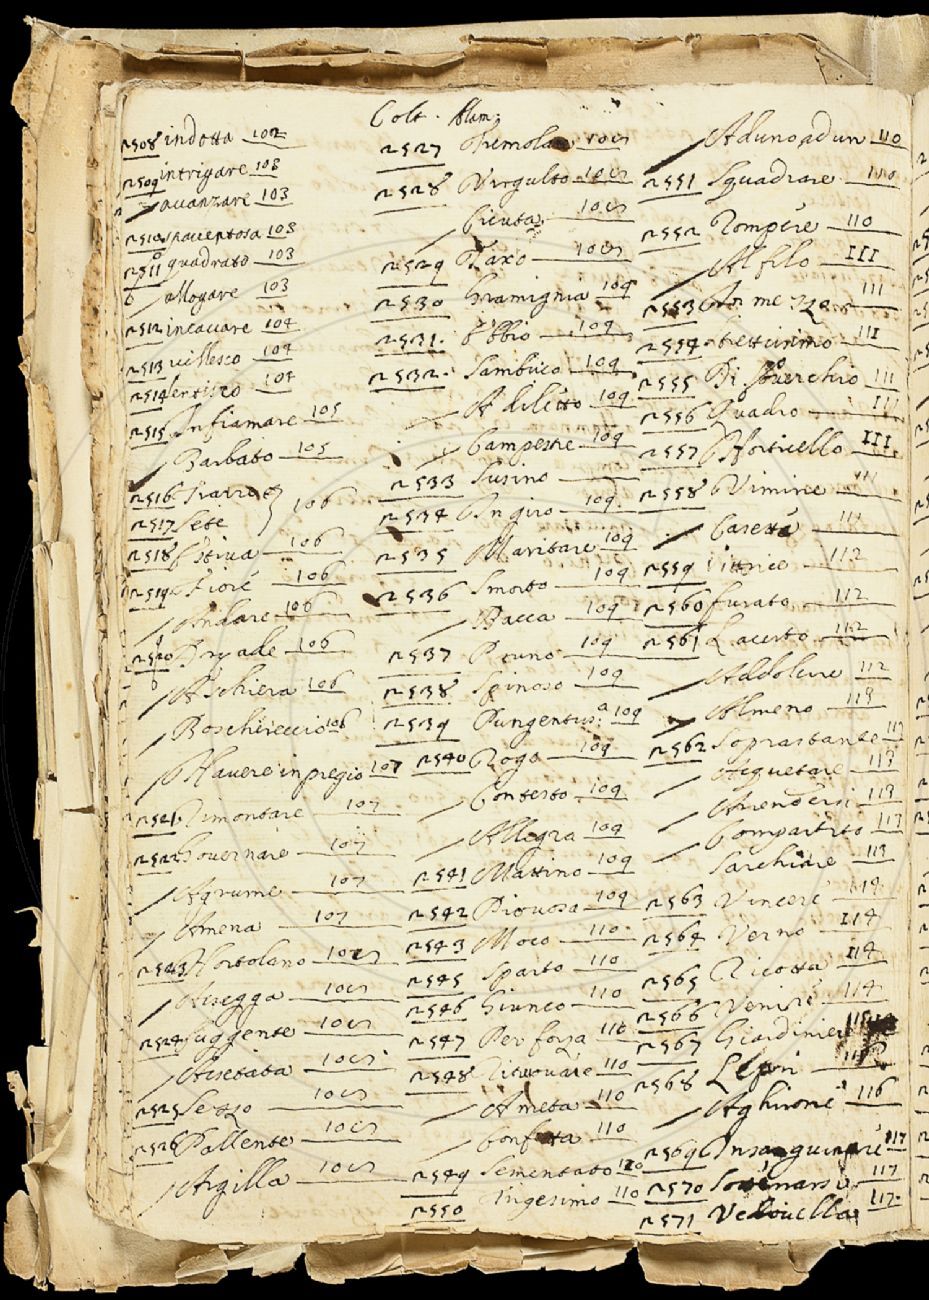 Colt. Alam.
2508 indotta 102
2509 intrigare 103
auanzare 103
2510 spauentosa 103
2511 quadrato 103
allogare 103
2512 incauare 104
2513 uillesco 104
2514 lentisco 104
2515 Infiamare 105
Barbato 105
2516
2517 Sete 106
2518 Estiua 106
2519 Fiore 106
Andare 106
2520 Dryade 106
Aschiera 106
Boschereccio 106
Hauere in pregio 107
2521 Rimontare 107
2522 Gouernare 107
Agrume 107
Amena 107
2523 Hortolano 108
Asegga 108
2524 Suggente 108
Assetata 108
2525 Sezzo 108
2526 Pallente 108
Argilla 108
2527 108
2528 Virgulto 108
Cicuta 108
2529 Taxo 108
2530 Gramignia 109
2531 Ebbio 109
2532 Sambuco 109
A diletto 109
Campestre 109
2533 Susino
2534 In giro 109
2535 Maritare 109
2536 Smorto 109
Bacca 109
2537 Pruno 109
2538 Spinoso 109
2539 Pungentiss.a 109
2540 Rogo 109
Contesto 109
Allegra 109
2541 Mattino 109
2542 Piouosa 109
2543 Moco 110
2545 Sparto 110
2546 Giunco 110
2547 Per forza 110
2548 Ritrouare 110
Ameta 110
110
2549 Sementato 110
2550 110
Aduno ad un 110
2551 Squadrare 110
2552 Rompere 110
Al filo 111
2553 In mezzo 111
2554 111
2555 Di souerchio 111
2556 Quadro 111
2557 Horticello 111
2558 Vimine 111
Casetta 111
2559 112
2560 furato 112
2561 Lacerto 112
Addolcire 112
Almeno 113
2562 Soprastante 113
Acquetare 113
Arrendersi 113
Compartito 113
Sarchiare 113
2563 Vincere 114
2564 Verno 114
2565 Ricotta 114
2566 Venire 114
2567 Giardiniere
2568
Aghirone 116
2569 Insanguinare 117
2570 117
2571 117